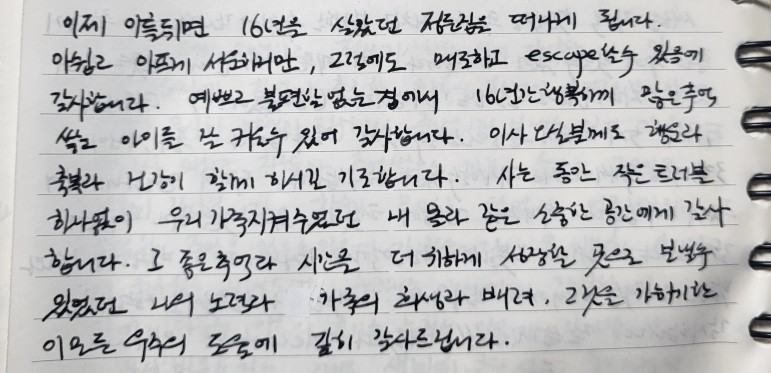 이제 이틀뒤면 16년을 살았던 정든집을 떠나게 됩니다.
아쉽고 아프게 서운하지만, 그럼에도 매도하고 escape할수 있음에
감사합니다. 예쁘고 불편함없는 집에서 16년간 행복하게 많은추억
쌓고 아이를 잘 키울수 있어 감사합니다. 이사 오실분께도 행운과
축복과 건강이 함께 하시길 기도합니다. 사는 동안 작은 트러블
하나없이 우리가족지켜주었던 내 몸과 같은 소중한 공간에게 감사
합니다. 그 좋은추억과 시간을 더 귀하게 성장할 곳으로 보낼수
있었던 나의 노력과 가족의 희생과 배려, 그것을 가능케한
이모든 우주의 도움에 깊히 감사드립니다.